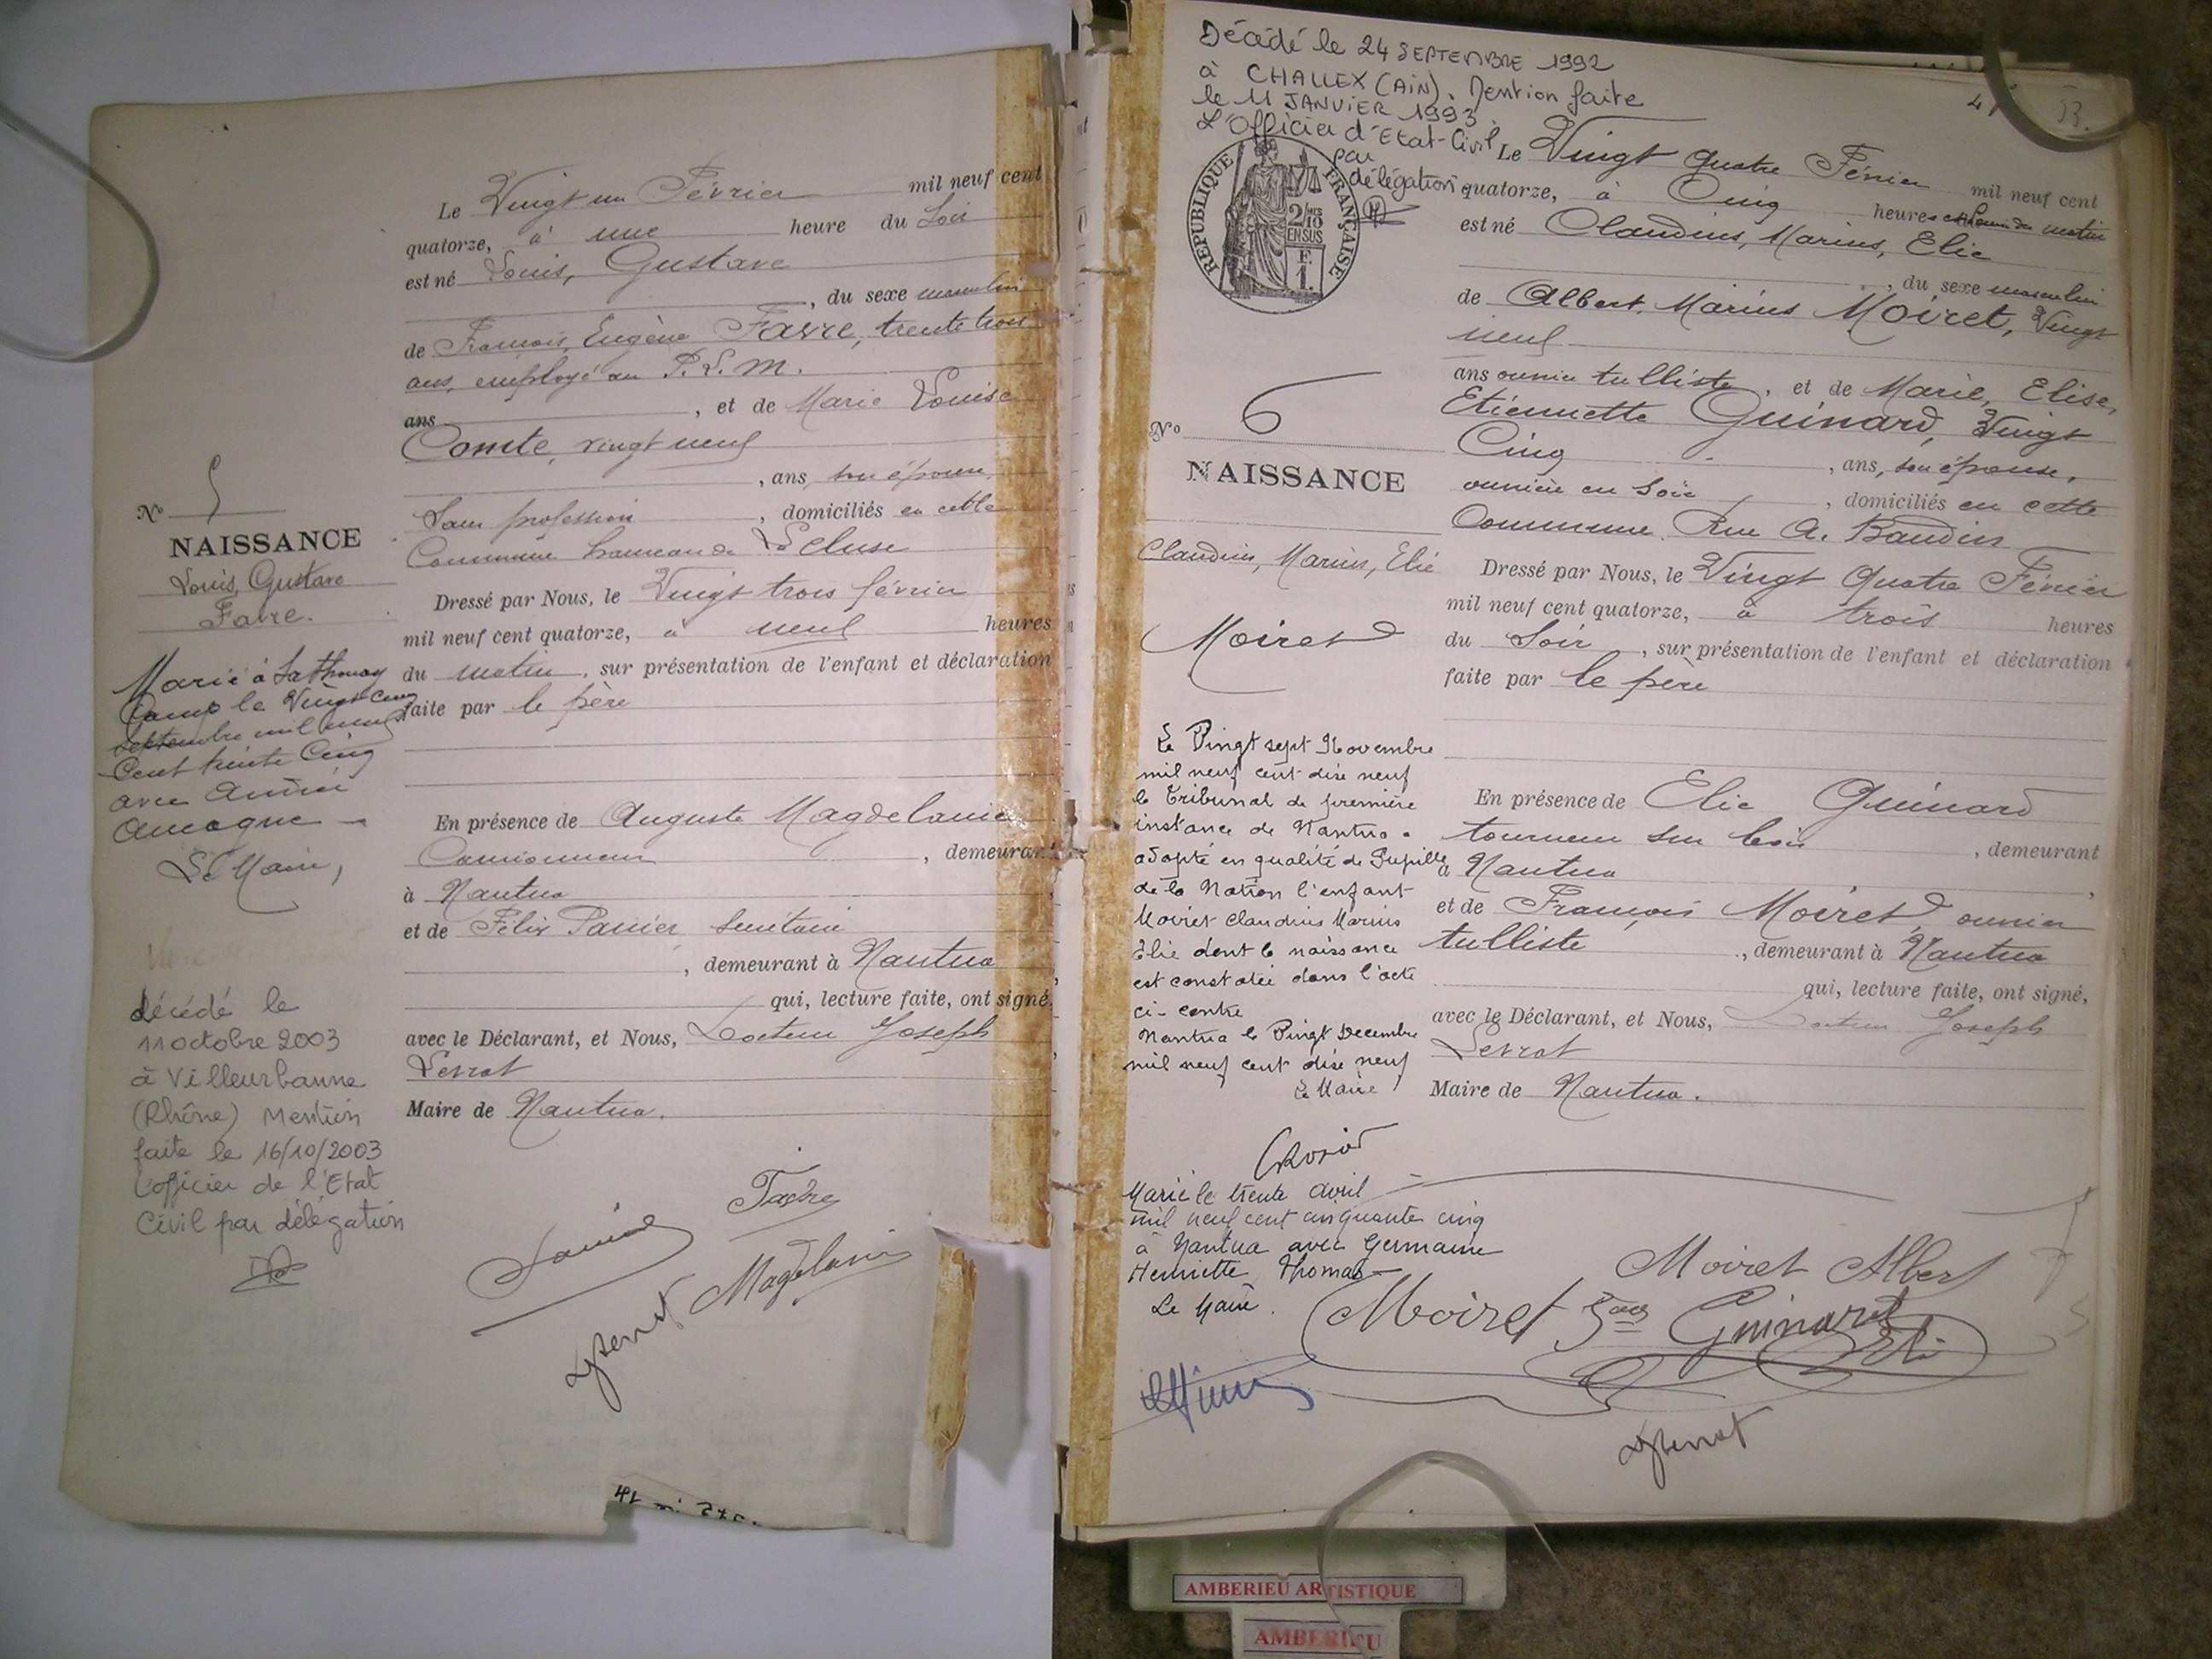 Le Vingt un Février mil neuf cent
quatorze, à une heure du Soir
est né Louis, Gustave
, du sexe masculin
de François, Eugène Favre, trente trois
ans, employé au P. L. M.
ans , et de Marie Louise
Comte, vingt neuf
, ans, son épouse,
Sans profession , domiciliés en cette
Commune hameau de
Dressé par Nous, le Vingt trois février
mil neuf cent quatorze, à neuf heures
du matin, sur présentation de l'enfant et déclaration
faite par le père
En présence de Auguste Magdelanie
Camionneur , demeurant
à Nantua
et de Félix Panier Secrétaire
, demeurant à Nantua
qui, lecture faite, ont signé
avec le Déclarant, et Nous, Docteur Joseph
Levrat
Maire de Nantua.
No 5
NAISSANCE
Louis, Gustave
Favre.
Marié à Sathonay
Camp le Vingt cinq
Septembre mil neuf
Cent trente Cinq
avec
Le Maire,
Décédé le
11 octobre 2003
à Villeurbanne
(Rhône) Mention
faite le 16/10/2003
l'officier de l'Etat
Civil par délégation
Favre
Décédé le 24 SEPTEMBRE 1992
à CHALLEX (AIN). Mention faite
le 11 JANVIER 1993.
L'Officier d'Etat-Civil
par
délégation
REPUBLIQUE FRANÇAISE
2/10
EN SUS
F.
1.
Le Vingt quatre Février mil neuf cent
quatorze, à Cinq heures du matin
est né Claudius, Marius, Elie
, du sexe masculin
de Albert, Marius Moiret, Vingt
neuf
ans ouvrier tulliste, et de Marie, Elise,
Etiennette Guinard, Vingt
Cinq , ans, son épouse,
ouvrière en Soie , domiciliés en cette
Commune Rue A. Baudin
Dressé par Nous, le Vingt Quatre Février
mil neuf cent quatorze, à trois heures
du Soir , sur présentation de l'enfant et déclaration
faite par le père
En présence de Elie Guinard
tourneur sur bois , demeurant
à Nantua
et de François Moiret, ouvrier
tulliste , demeurant à Nantua
qui, lecture faite, ont signé,
avec le Déclarant, et Nous, Docteur Joseph
Levrat
Maire de Nantua.
No 6
NAISSANCE
Claudius, Marius, Elie
Moiret
Le Vingt sept Novembre
mil neuf cent dix neuf
le Tribunal de première
instance de Nantua a
adopté en qualité de Pupille
de la Nation l'enfant
Moiret Claudius Marius
Elie dont la naissance
est constatée dans l'acte
ci-contre
Nantua le Vingt Décembre
mil neuf cent dix neuf
Le Maire
Marié le trente avril
mil neuf cent cinquante cinq
à Nantua avec Germaine
Henriette Thomas
Le Maire.
Moiret Albert
Moiret Guinard
AMBERIEU ARTISTIQUE
AMBERIEU